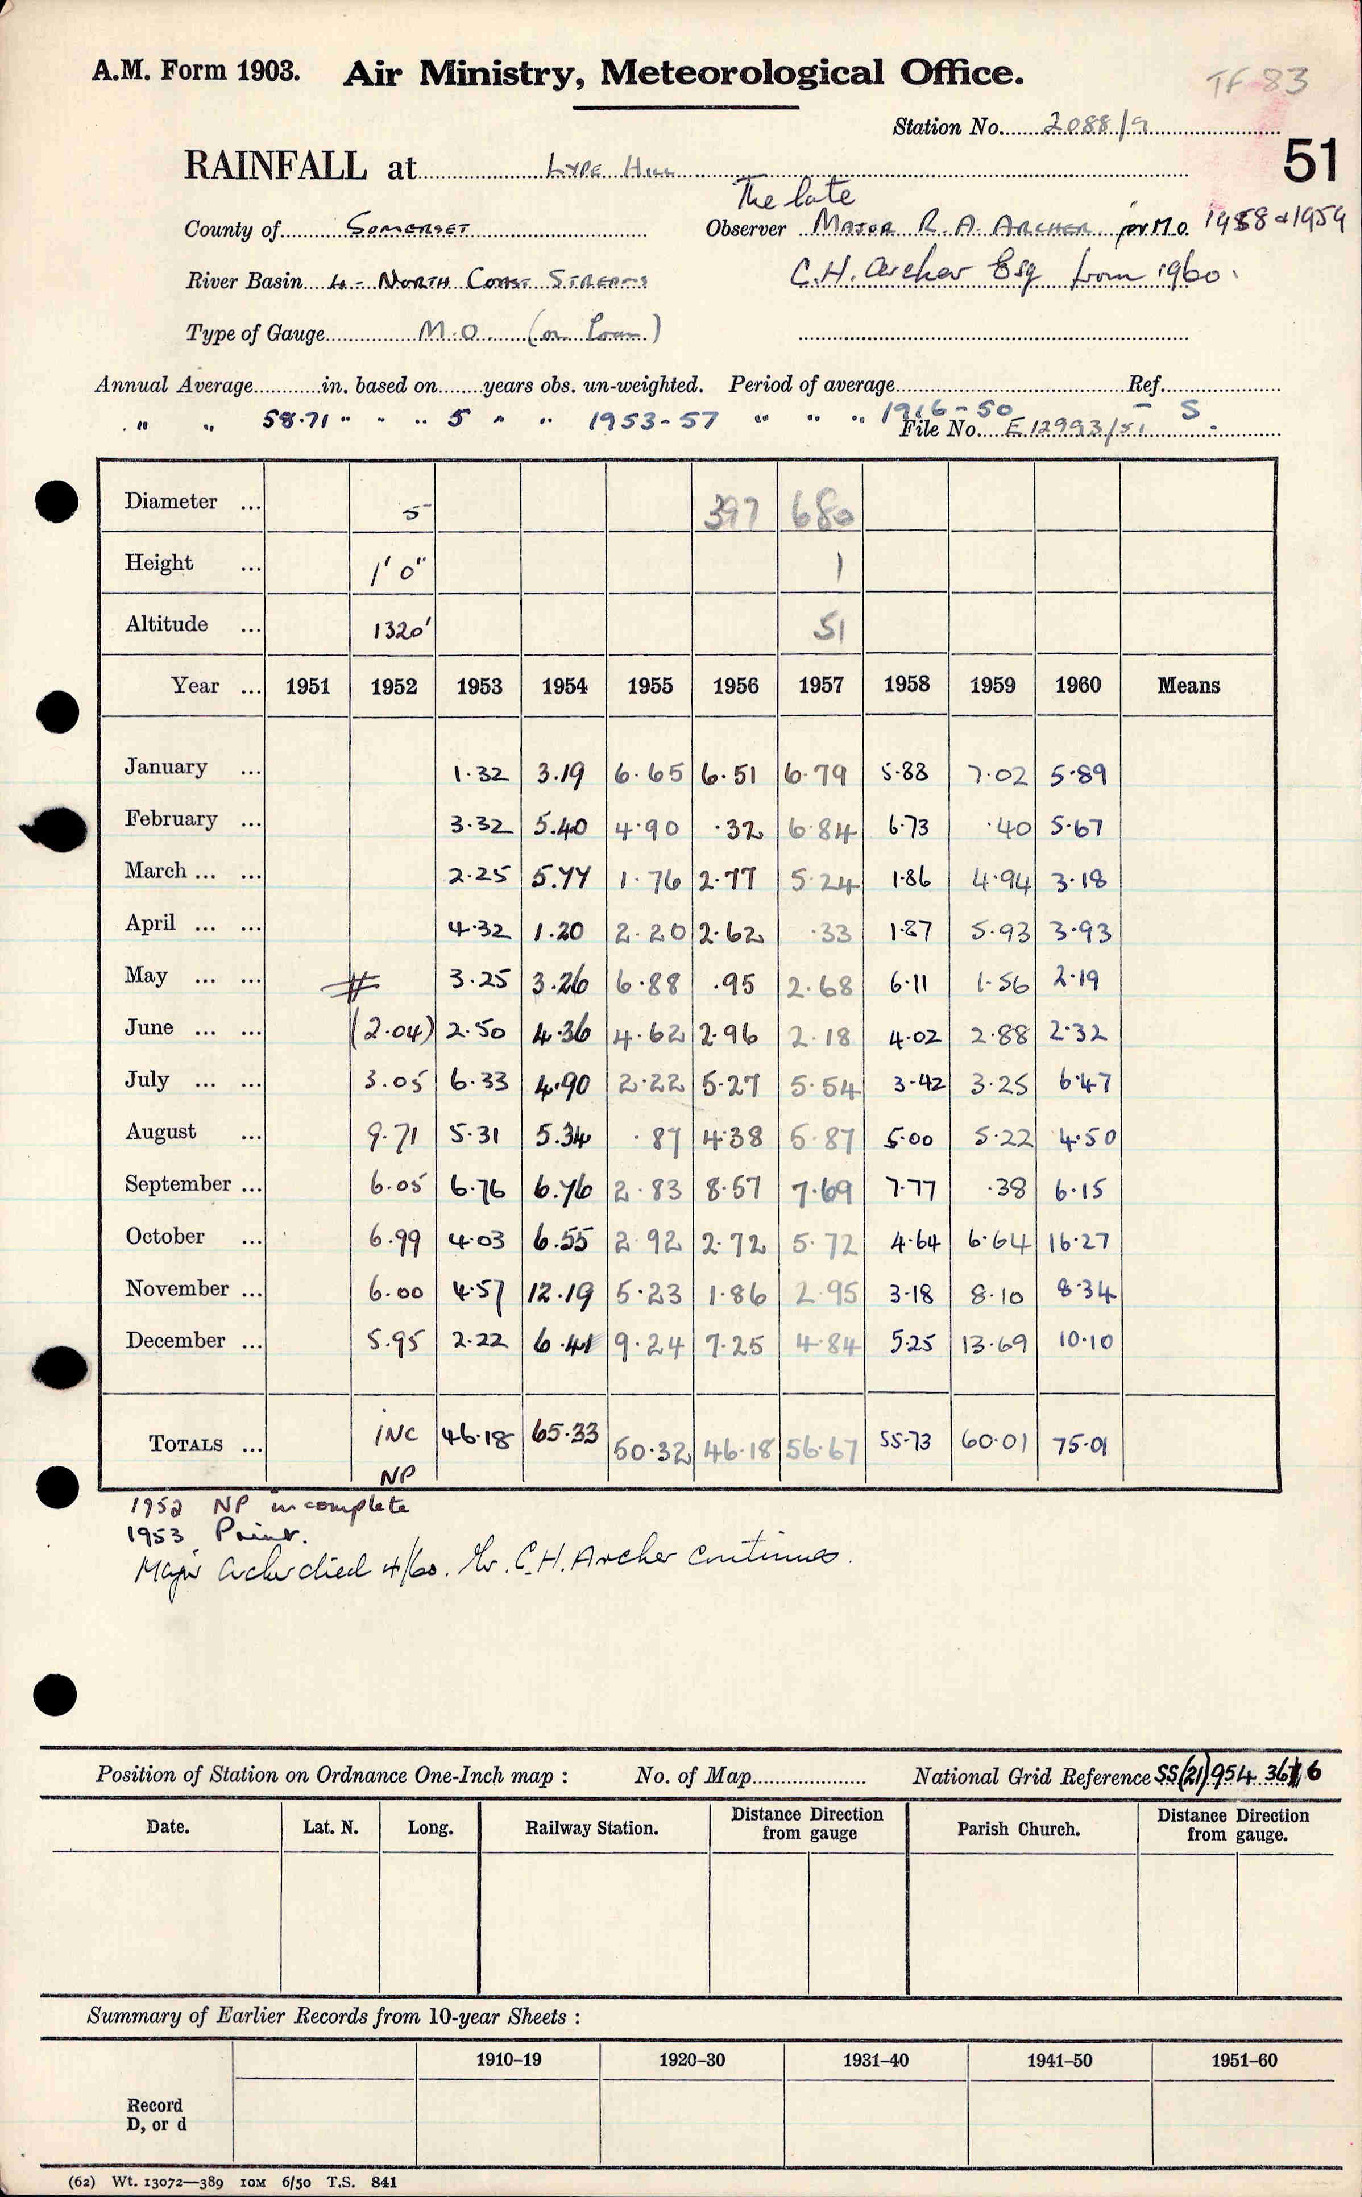 A.M. Form 1903. Air Ministry, Meteorological Office. TF 83
Station No. 2088/9
51
RAINFALL at Lype Hill
The late
County of Somerset Observer Major R. A. Archer for M.O. 1958 & 1959
River Basin 4 - North Coast Streams C.H. Archer Esq from 1960.
Type of Gauge M.O (on Loan)
Annual Average in. based on years obs. un-weighted. Period of average Ref.
" " 58.71 " " " 5 " " 1953-57 " " " 1916-50 - S
File No. E 12993/51
Diameter ... 5 397 680
Height ... 1' 0" 1
Altitude ... 1320' 51
Year ... 1951 1952 1953 1954 1955 1956 1957 1958 1959 1960 Means
January ... 1.32 3.19 6.65 6.51 6.79 5.88 7.02 5.89
February ... 3.32 5.40 4.90 .32 6.84 6.73 .40 5.67
March ... ... 2.25 5.77 1.76 2.77 5.24 1.86 4.94 3.18
April ... ... 4.32 1.20 2.20 2.62 .33 1.87 5.93 3.93
May ... ... # 3.25 3.26 6.88 .95 2.68 6.11 1.56 2.19
June ... ... (2.04) 2.50 4.36 4.62 2.96 2.18 4.02 2.88 2.32
July ... ... 3.05 6.33 4.90 2.22 5.27 5.54 3.42 3.25 6.47
August ... 9.71 5.31 5.34 .87 4.38 5.87 5.00 5.22 4.50
September ... 6.05 6.76 6.76 2.83 8.57 7.69 7.77 .38 6.15
October ... 6.99 4.03 6.55 2.92 2.72 5.72 4.64 6.64 16.27
November ... 6.00 4.57 12.19 5.23 1.86 2.95 3.18 8.10 8.34
December ... 5.95 2.22 6.41 9.24 7.25 4.84 5.25 13.69 10.10
TOTALS ... INC 46.18 65.33 50.32 46.18 56.67 55.73 60.01 75.01
NP
1952 NP incomplete
1953 Print.
Major Archer died 4/60. Mr. C.H. Archer continues.
Position of Station on Ordnance One-Inch map : No. of Map National Grid Reference SS(21)954 36 6
Date. Lat. N. Long. Railway Station. Distance Direction from gauge Parish Church. Distance Direction from gauge.
Summary of Earlier Records from 10-year Sheets :
1910–19 1920–30 1931–40 1941–50 1951–60
Record
D, or d
(62) Wt. 13072—389 10M 6/50 T.S. 841